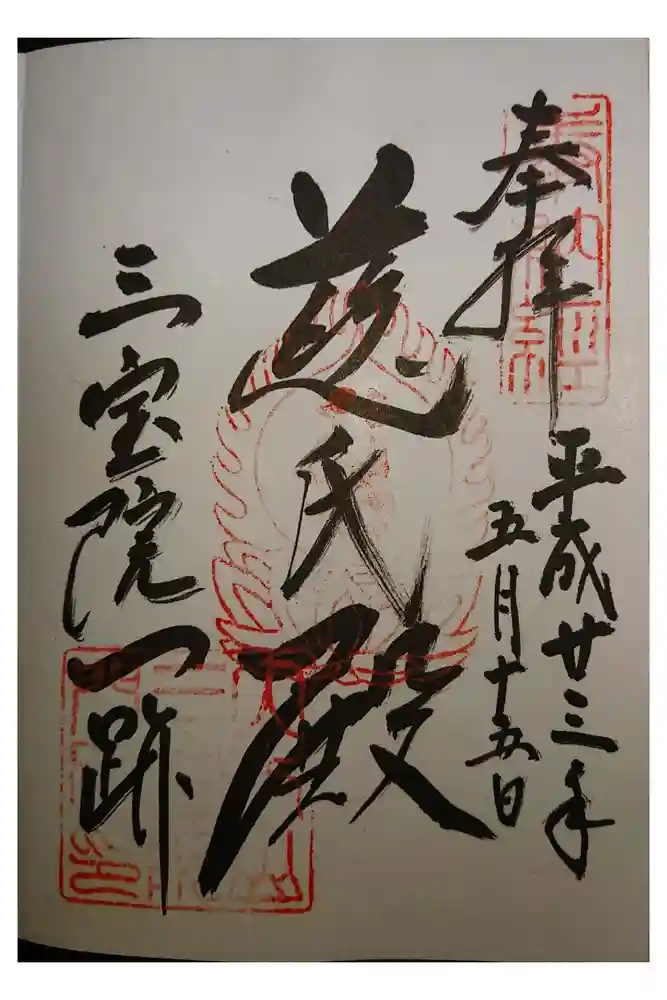 奉拝
平成廿三年
五月十五日
慈氏殿
三宝院門跡